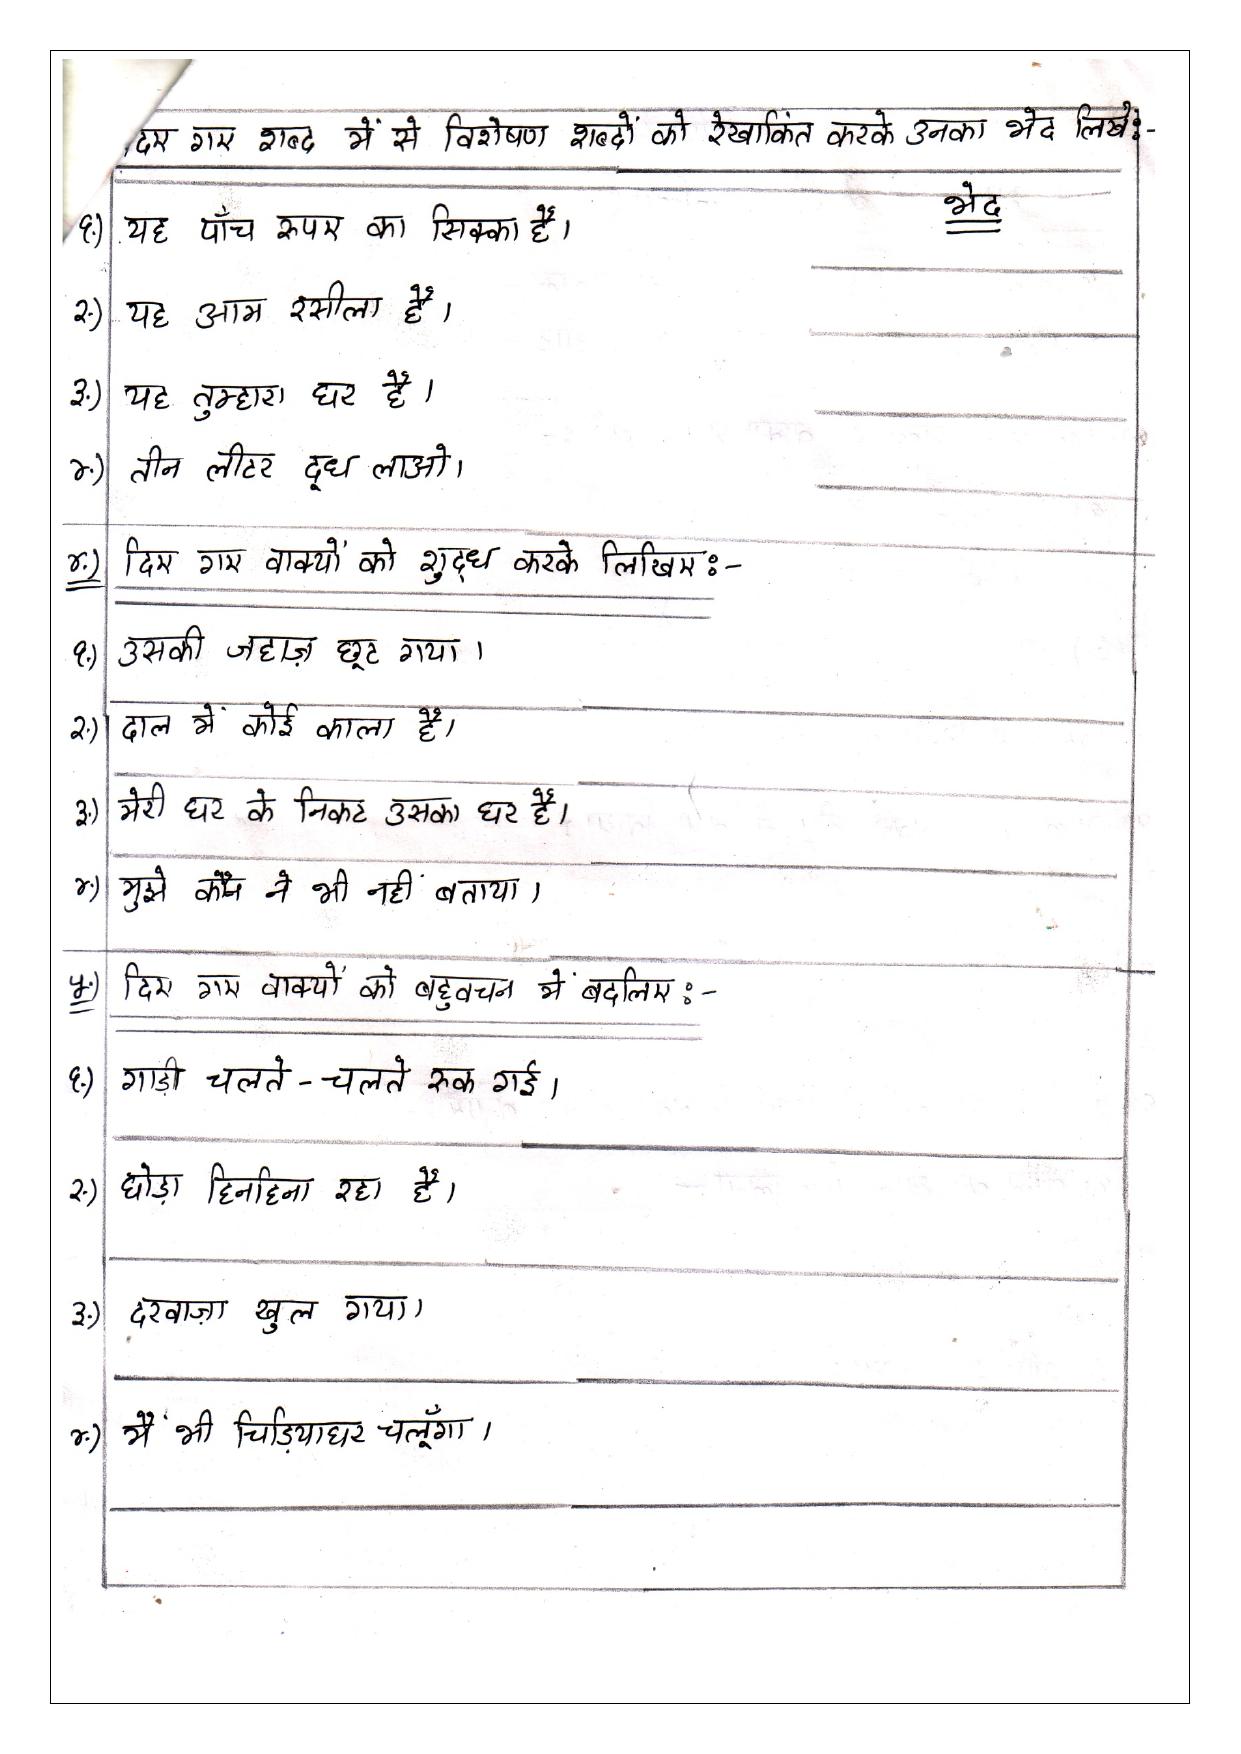 दिए गए शब्द में से विशेषण शब्दों को रेखाकिंत करके उनका भेद लिखें:-
भेद
१.) यह पाँच रुपए का सिक्का है।
२.) यह आम रसीला है।
३.) यह तुम्हारा घर है।
४.) तीन लीटर दूध लाओ।
४.) दिए गए वाक्यों को शुद्ध करके लिखिए:-
१.) उसकी जहाज़ छूट गया।
२.) दाल में कोई काला है।
३.) मेरी घर के निकट उसका घर है।
४.) मुझे ने भी नहीं बताया।
५.) दिए गए वाक्यों को बहुवचन में बदलिए:-
१.) गाड़ी चलते-चलते रुक गई।
२.) घोड़ा हिनहिना रहा है।
३.) दरवाज़ा खुल गया।
४.) मैं भी चिड़ियाघर चलूँगा।